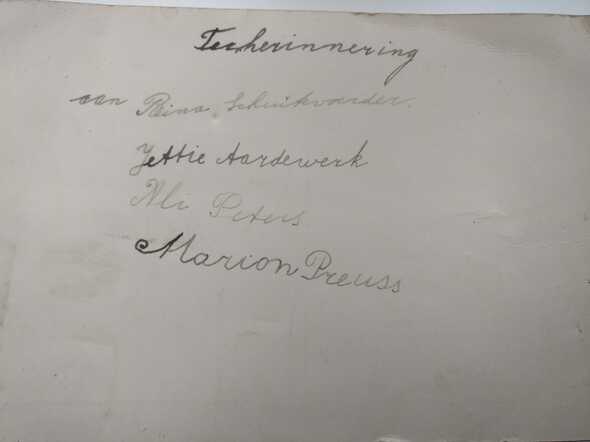 Ter herinnering
aan Rina Schuitvoerder.
Jettie Aardewerk
Ali Peters
Marion Preuss